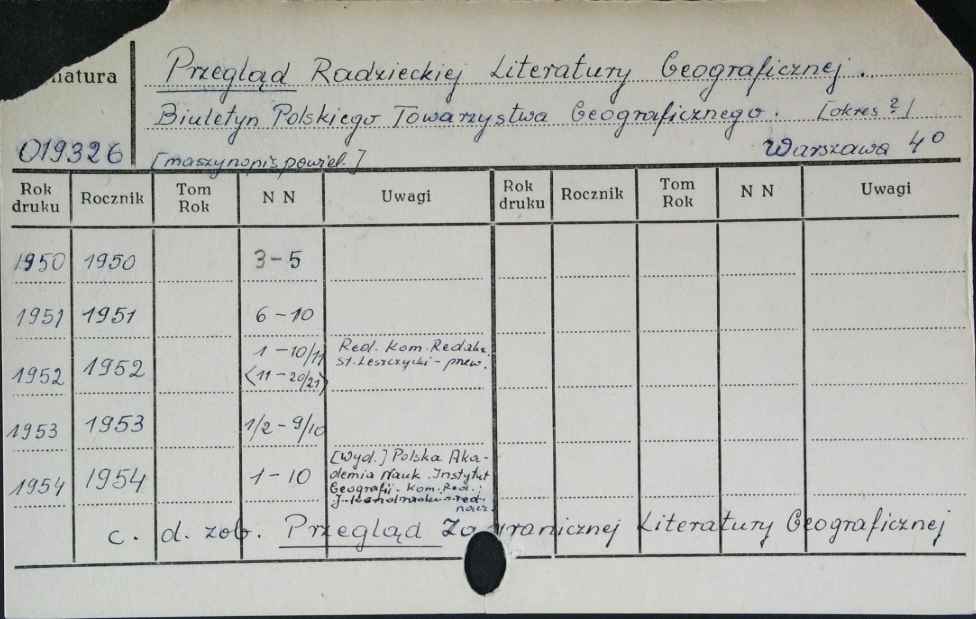 natura
Przegląd Radzieckiej Literatury Geograficznej.
Biuletyn Polskiego Towarzystwa Geograficznego. [okres ?]
019326 [maszynopis powiel.] Warszawa 4°
Rok druku Rocznik Tom Rok N N Uwagi Rok druku Rocznik Tom Rok N N Uwagi
1950 1950 3-5
1951 1951 6-10
1952 1952 1-10/11 <11-20/21> Red. Kom. Redakc. St. Leszczycki - przew.
1953 1953 1/2-9/10
1954 1954 1-10 [Wyd.] Polska Aka-
demia Nauk. Instytut
Geografii. Kom. Red.:
J. Kondracki - red.
nacz.
c. d. zob. Przegląd Zagranicznej Literatury Geograficznej